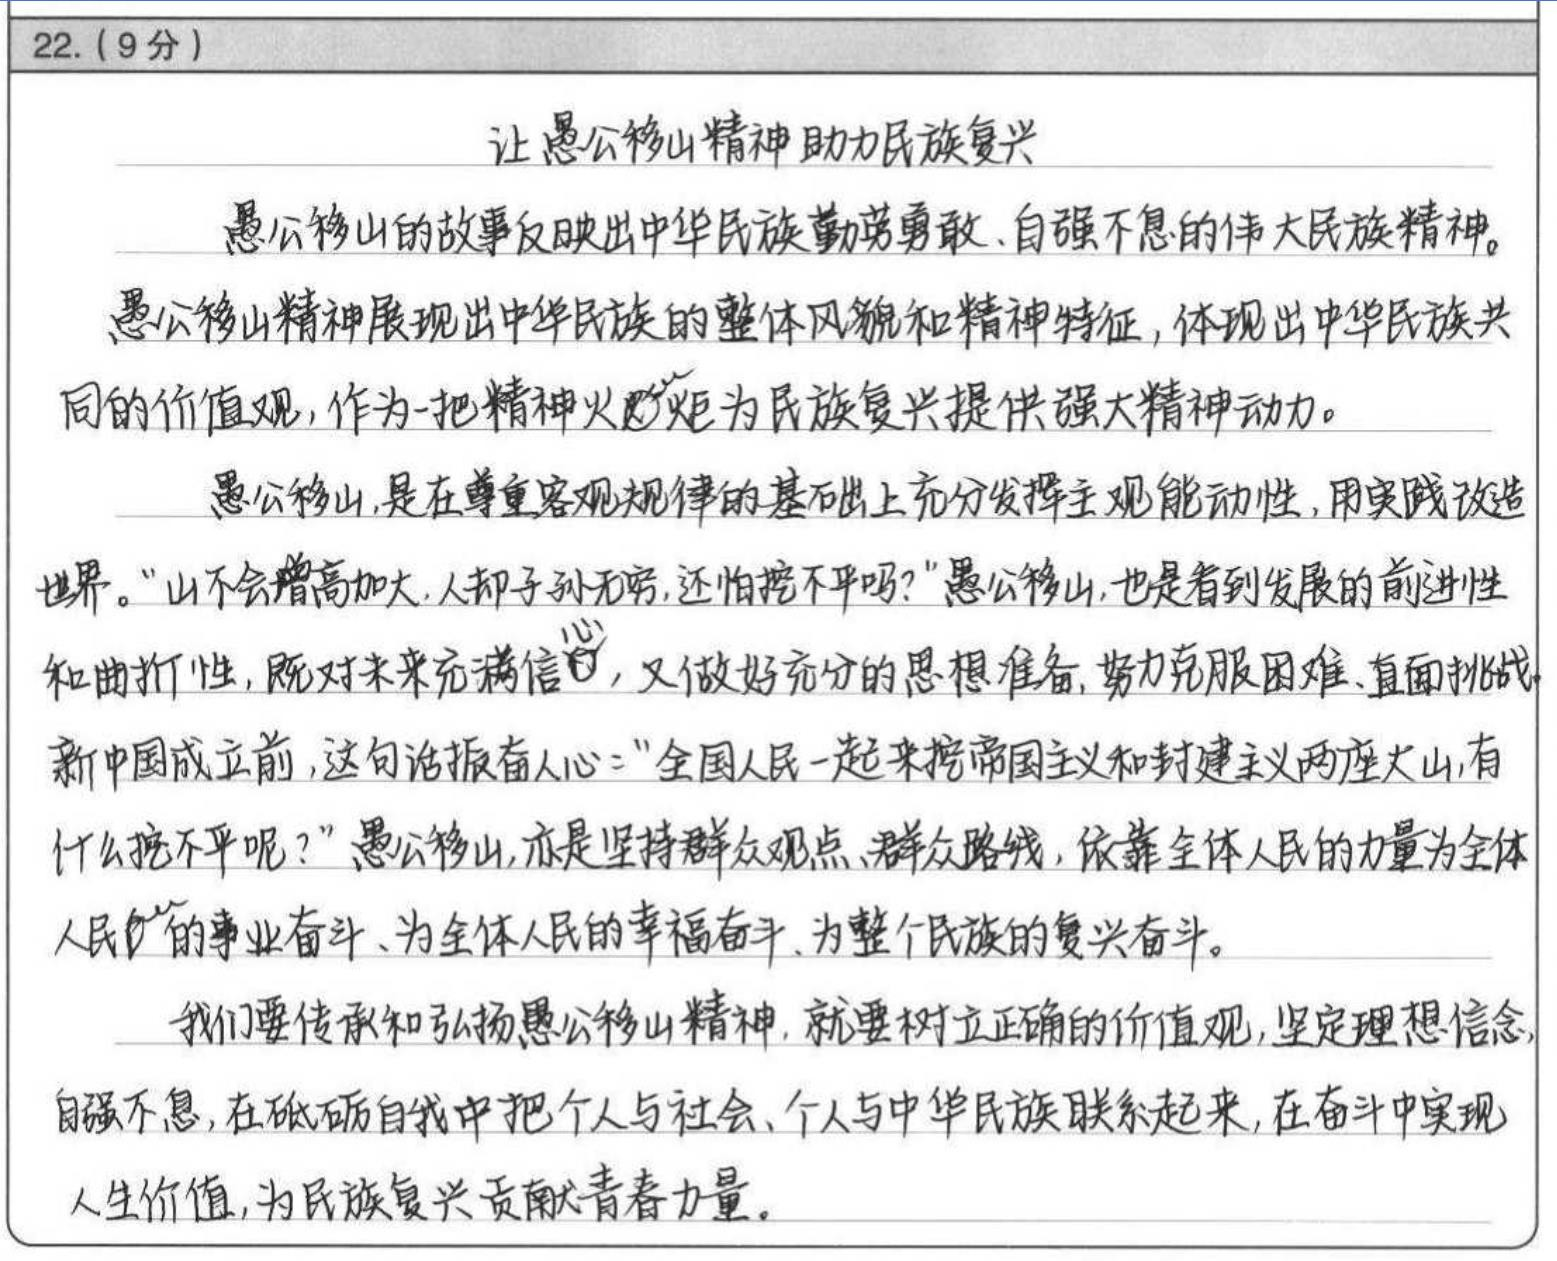 22.（9分）
让愚公移山精神助力民族复兴
愚公移山的故事反映出中华民族勤劳勇敢、自强不息的伟大民族精神。
愚公移山精神展现出中华民族的整体风貌和精神特征，体现出中华民族共
同的价值观，作为一把精神火炬为民族复兴提供强大精神动力。
愚公移山，是在尊重客观规律的基础上充分发挥主观能动性，用实践改造
世界。“山不会增高加大，人却子孙无穷，还怕挖不平吗？”愚公移山，也是看到发展的前进性
和曲折性，既对未来充满信心，又做好充分的思想准备，努力克服困难、直面挑战。
新中国成立前，这句话振奋人心：“全国人民一起来挖帝国主义和封建主义两座大山，有
什么挖不平呢？”愚公移山，亦是坚持群众观点、群众路线，依靠全体人民的力量为全体
人民的事业奋斗、为全体人民的幸福奋斗、为整个民族的复兴奋斗。
我们要传承和弘扬愚公移山精神，就要树立正确的价值观，坚定理想信念，
自强不息，在砥砺自我中把个人与社会、个人与中华民族联系起来，在奋斗中实现
人生价值，为民族复兴贡献青春力量。